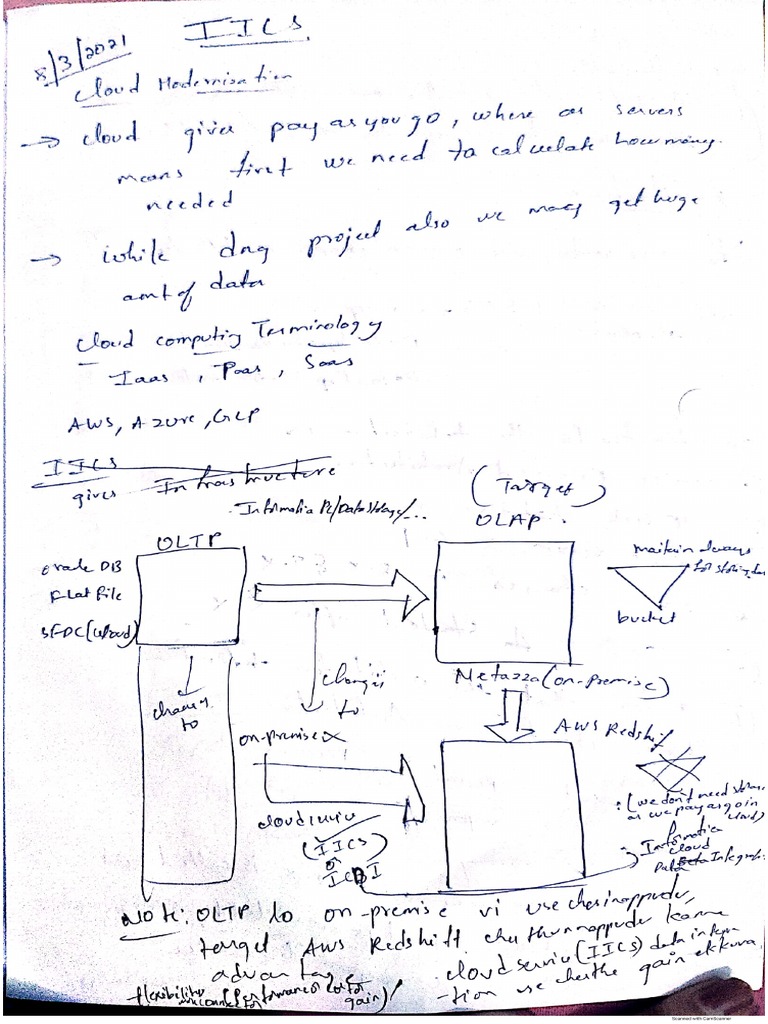 IICS
8/3/2021
Cloud Modernisation
→ cloud gives pay as you go, where as servers
means first we need to calculate how many
needed
→ while dng project also we may get huge
amt of data
Cloud computing Terminology
Iaas, Paas, Saas
AWS, Azure, GCP
IICS
gives Infrastructure
Informatica PC/Datastage/...
(Target)
OLAP
OLTP
Oracle DB
Flat file
SFDC (cloud)
maintain always
for storing data
bucket
Netazza (on-premise)
changes
to
changing
to
on-premise X
AWS Redshift
cloud service
(IICS)
or
ICDI
(we don't need storage
as we pay as go in
cloud)
Informatica
Cloud
Data Integration
Note: OLTP lo on-premise vi use chesinappudu,
target AWS Redshift chesthunnappudu kanna
cloud service (IICS) data integra
-tion use chesthe gain ekkuva
advantage
flexibility performance
gain)
Scanned with CamScanner